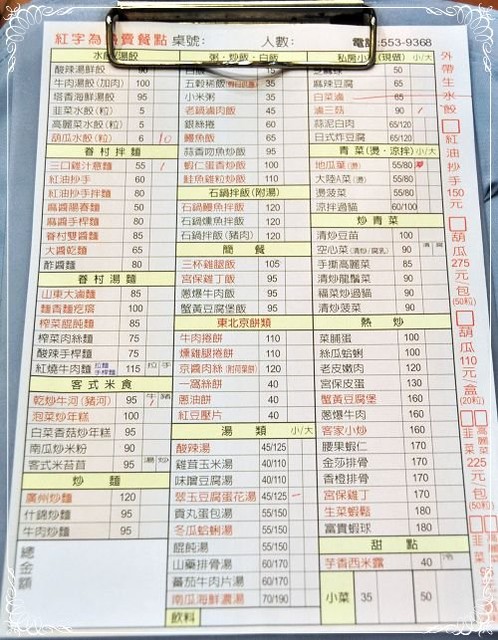 紅字為熱賣餐點 桌號: 人數: 電話:553-9368
水餃/湯餃
酸辣湯鮮餃 90
牛肉湯餃(加肉) 100
塔香海鮮湯餃 95
韭菜水餃(粒) 5
高麗菜水餃(粒) 5
胡瓜水餃(粒) 6 10
眷村拌麵
三口雞汁意麵 55 1
紅油抄手 60
紅油抄手拌麵 80
麻醬腸蓉麵 50
麻醬手桿麵 80
眷村雙醬麵 85
大醬乾麵 65
酢醬麵 80
眷村湯麵
山東大滷麵 85
麵香麵疙瘩 100
榨菜餛飩麵 85
榨菜肉絲麵 75
酸辣手桿麵 75
紅燒牛肉麵 拉麵 手桿麵 115 拉 手
客式米食
乾炒牛河(豬河) 95 牛 豬
泡菜炒年糕 100
白菜香菇炒年糕 95
南瓜炒米粉 90
客式米苔苜 95 湯 炒
炒麵
廣州炒麵 120
什錦炒麵 95
牛肉炒麵 95
總金額
粥‧炒飯‧白飯
白飯
五穀稀飯 35
小米粥 35
老鍋滷肉飯 45
銀絲捲 60
鰻魚飯 65
蒜香吻魚炒飯 95
蝦仁蛋香炒飯 100
鮭魚雞粒炒飯 110
石鍋拌飯(附湯)
石鍋鰻魚拌飯 120
石鍋燻魚拌飯 120
石鍋拌飯(豬肉) 120
簡餐
三杯雞腿飯 105
宮保雞丁飯 95
蔥爆牛肉飯 95
蟹黃豆腐煲飯 95
東北京餅類
牛肉捲餅 110
燻雞腿捲餅 110
京醬肉絲(附荷葉餅) 120
一窩絲餅 40
蔥油餅 40
紅豆壓片 40
湯類 小/大
酸辣湯 45/125
雞茸玉米湯 40/110
味噌豆腐湯 40/110
翠玉豆腐蛋花湯 45/125 一
貢丸蛋包湯 55/150
冬瓜蛤蜊湯 55/150
餛飩湯 55/150
山藥排骨湯 60/170
蕃茄牛肉片湯 60/170
南瓜海鮮濃湯 70/190
飲料
私房小 (現做) 小/大
麻辣豆腐 65
白菜滷 65
滷三菇 90
蒜泥白肉 65/120
日式炸豆腐 65/120
青菜(燙‧涼拌) 小/大
地瓜葉(燙) 55/80
大陸A菜(燙) 55/80
燙菠菜 55/80
涼拌過貓 60/100
炒青菜
清炒豆苗 100
空心菜(清炒/腐乳) 90
手撕高麗菜 85
清炒龍鬚菜 90
福菜炒過貓 90
清炒菠菜 90
熱炒
菜脯蛋 100
絲瓜蛤蜊 100
老皮嫩肉 120
宮保皮蛋 130
蟹黃豆腐煲 160
蔥爆牛肉 160
客家小炒 160
腰果蝦仁 170
金莎排骨 170
香橙排骨 170
宮保雞丁 170
生菜蝦鬆 180
富貴蝦球 180
甜點
芋香西米露 40 冷
小菜 35 50
外帶生水餃
紅油抄手150元
胡瓜275元/包(50粒)
胡瓜110元/盒(20粒)
高麗菜 韭菜 225元/包(50粒)